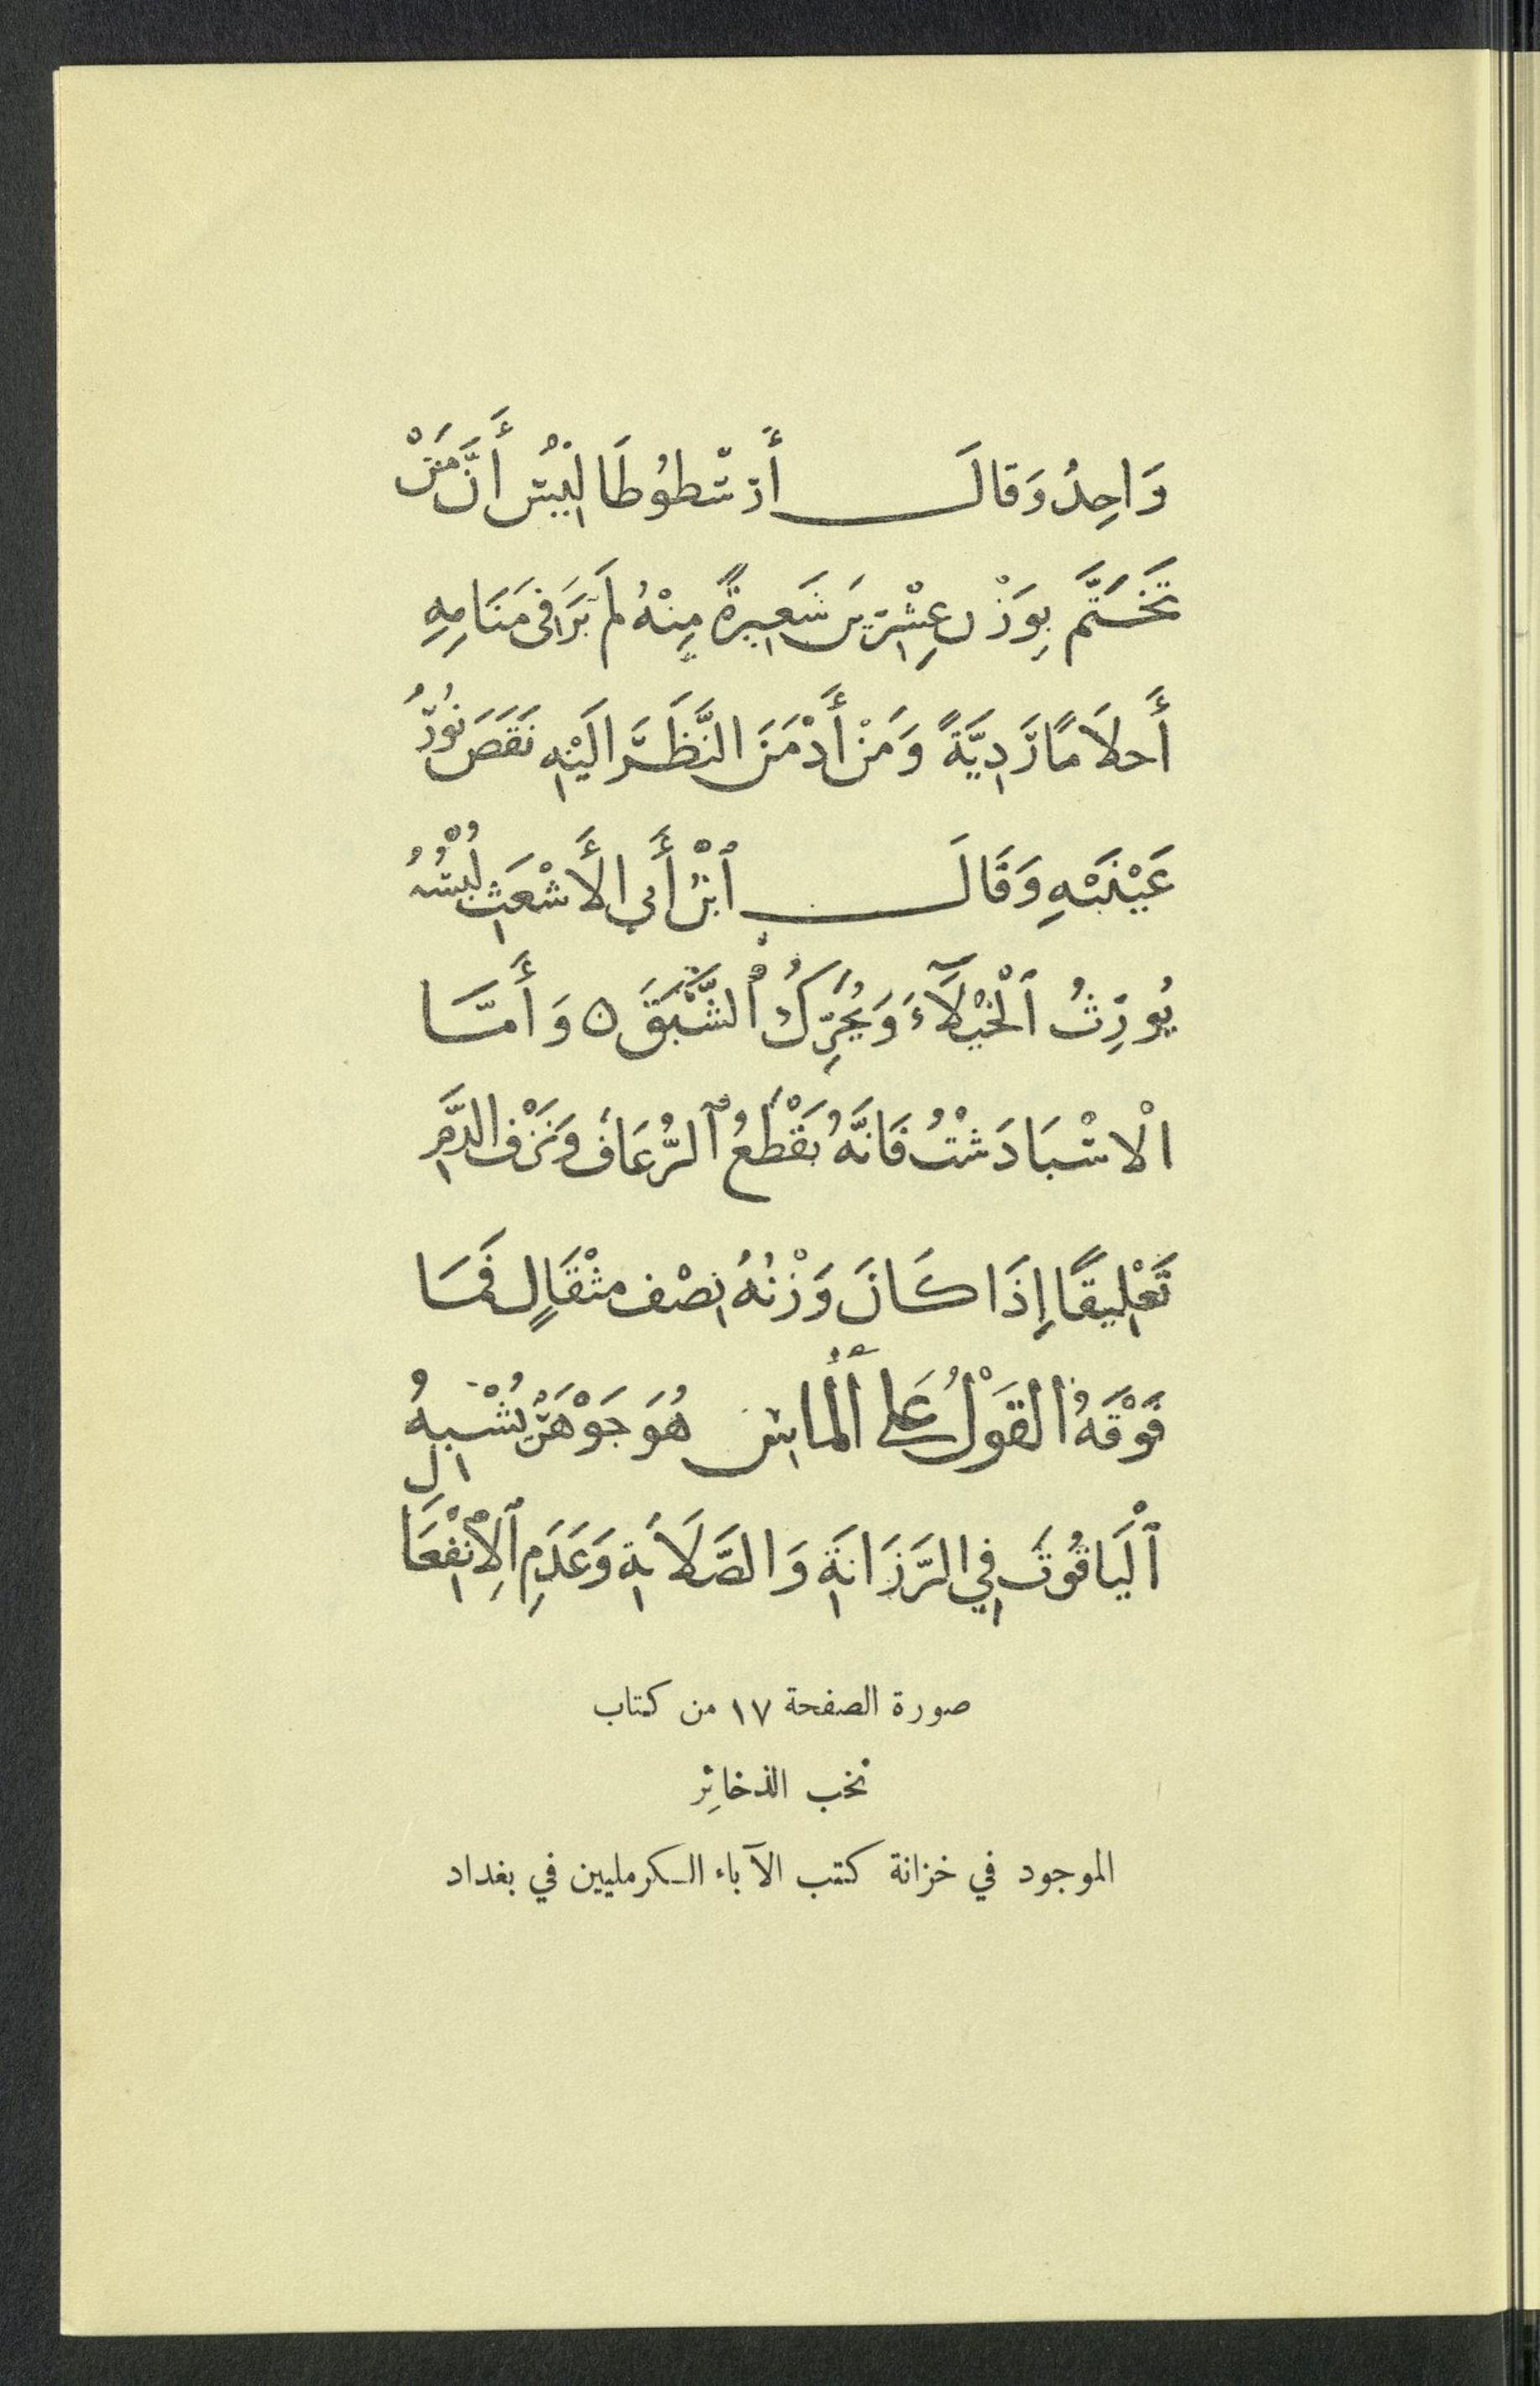 وَاحِدُ وَقَالَ أَرسْطُوطَا لِيْسُ أَنَّ مَنْ
تَخَتَّمَ بِوَزْن عِشْرِيْنَ شَعِيرةً مِنْهُ لَمْ يَرَ فى مَنَامِهِ
أَحلَامًا رَدِيَّةً وَمَنْ أَدْمَنَ النَّظَرَ الَيْهِ نَقَصَ نُورُ
عَيْنَيْهِ وَقَالَ ٱبْنُ أَبى الأَشْعَثِ لُبْسُهُ
يُورِثُ ٱلْخُيَلَآءَ وَيُحَرِّكُ ٱلشَّبَقَ ٥ وَأَمَّا
الْاسْبَادَشْتُ فَانَّهُ يَقْطَعُ ٱلرُّعَافَ وَنَزْفَ الدَّمِ
تَعْلِيقًا إِذَا كَانَ وَزْنُهُ نِصْف مِثْقَالٍ فَمَا
فَوْقَهُ القَوْلُ عَلى أَلماس هُوَ جَوْهَرٌ يُشْبِهُ
ٱلْيَاقُوتَ فِي الرَّزَانَةِ وَالصَّلَابَةِ وَعَدَمِ ٱلِانْفِعَالِ
صورة الصفحة ١٧ من كتاب
نخب الذخائِر
الموجود في خزانة كتب الآباء الكرمليين في بغداد